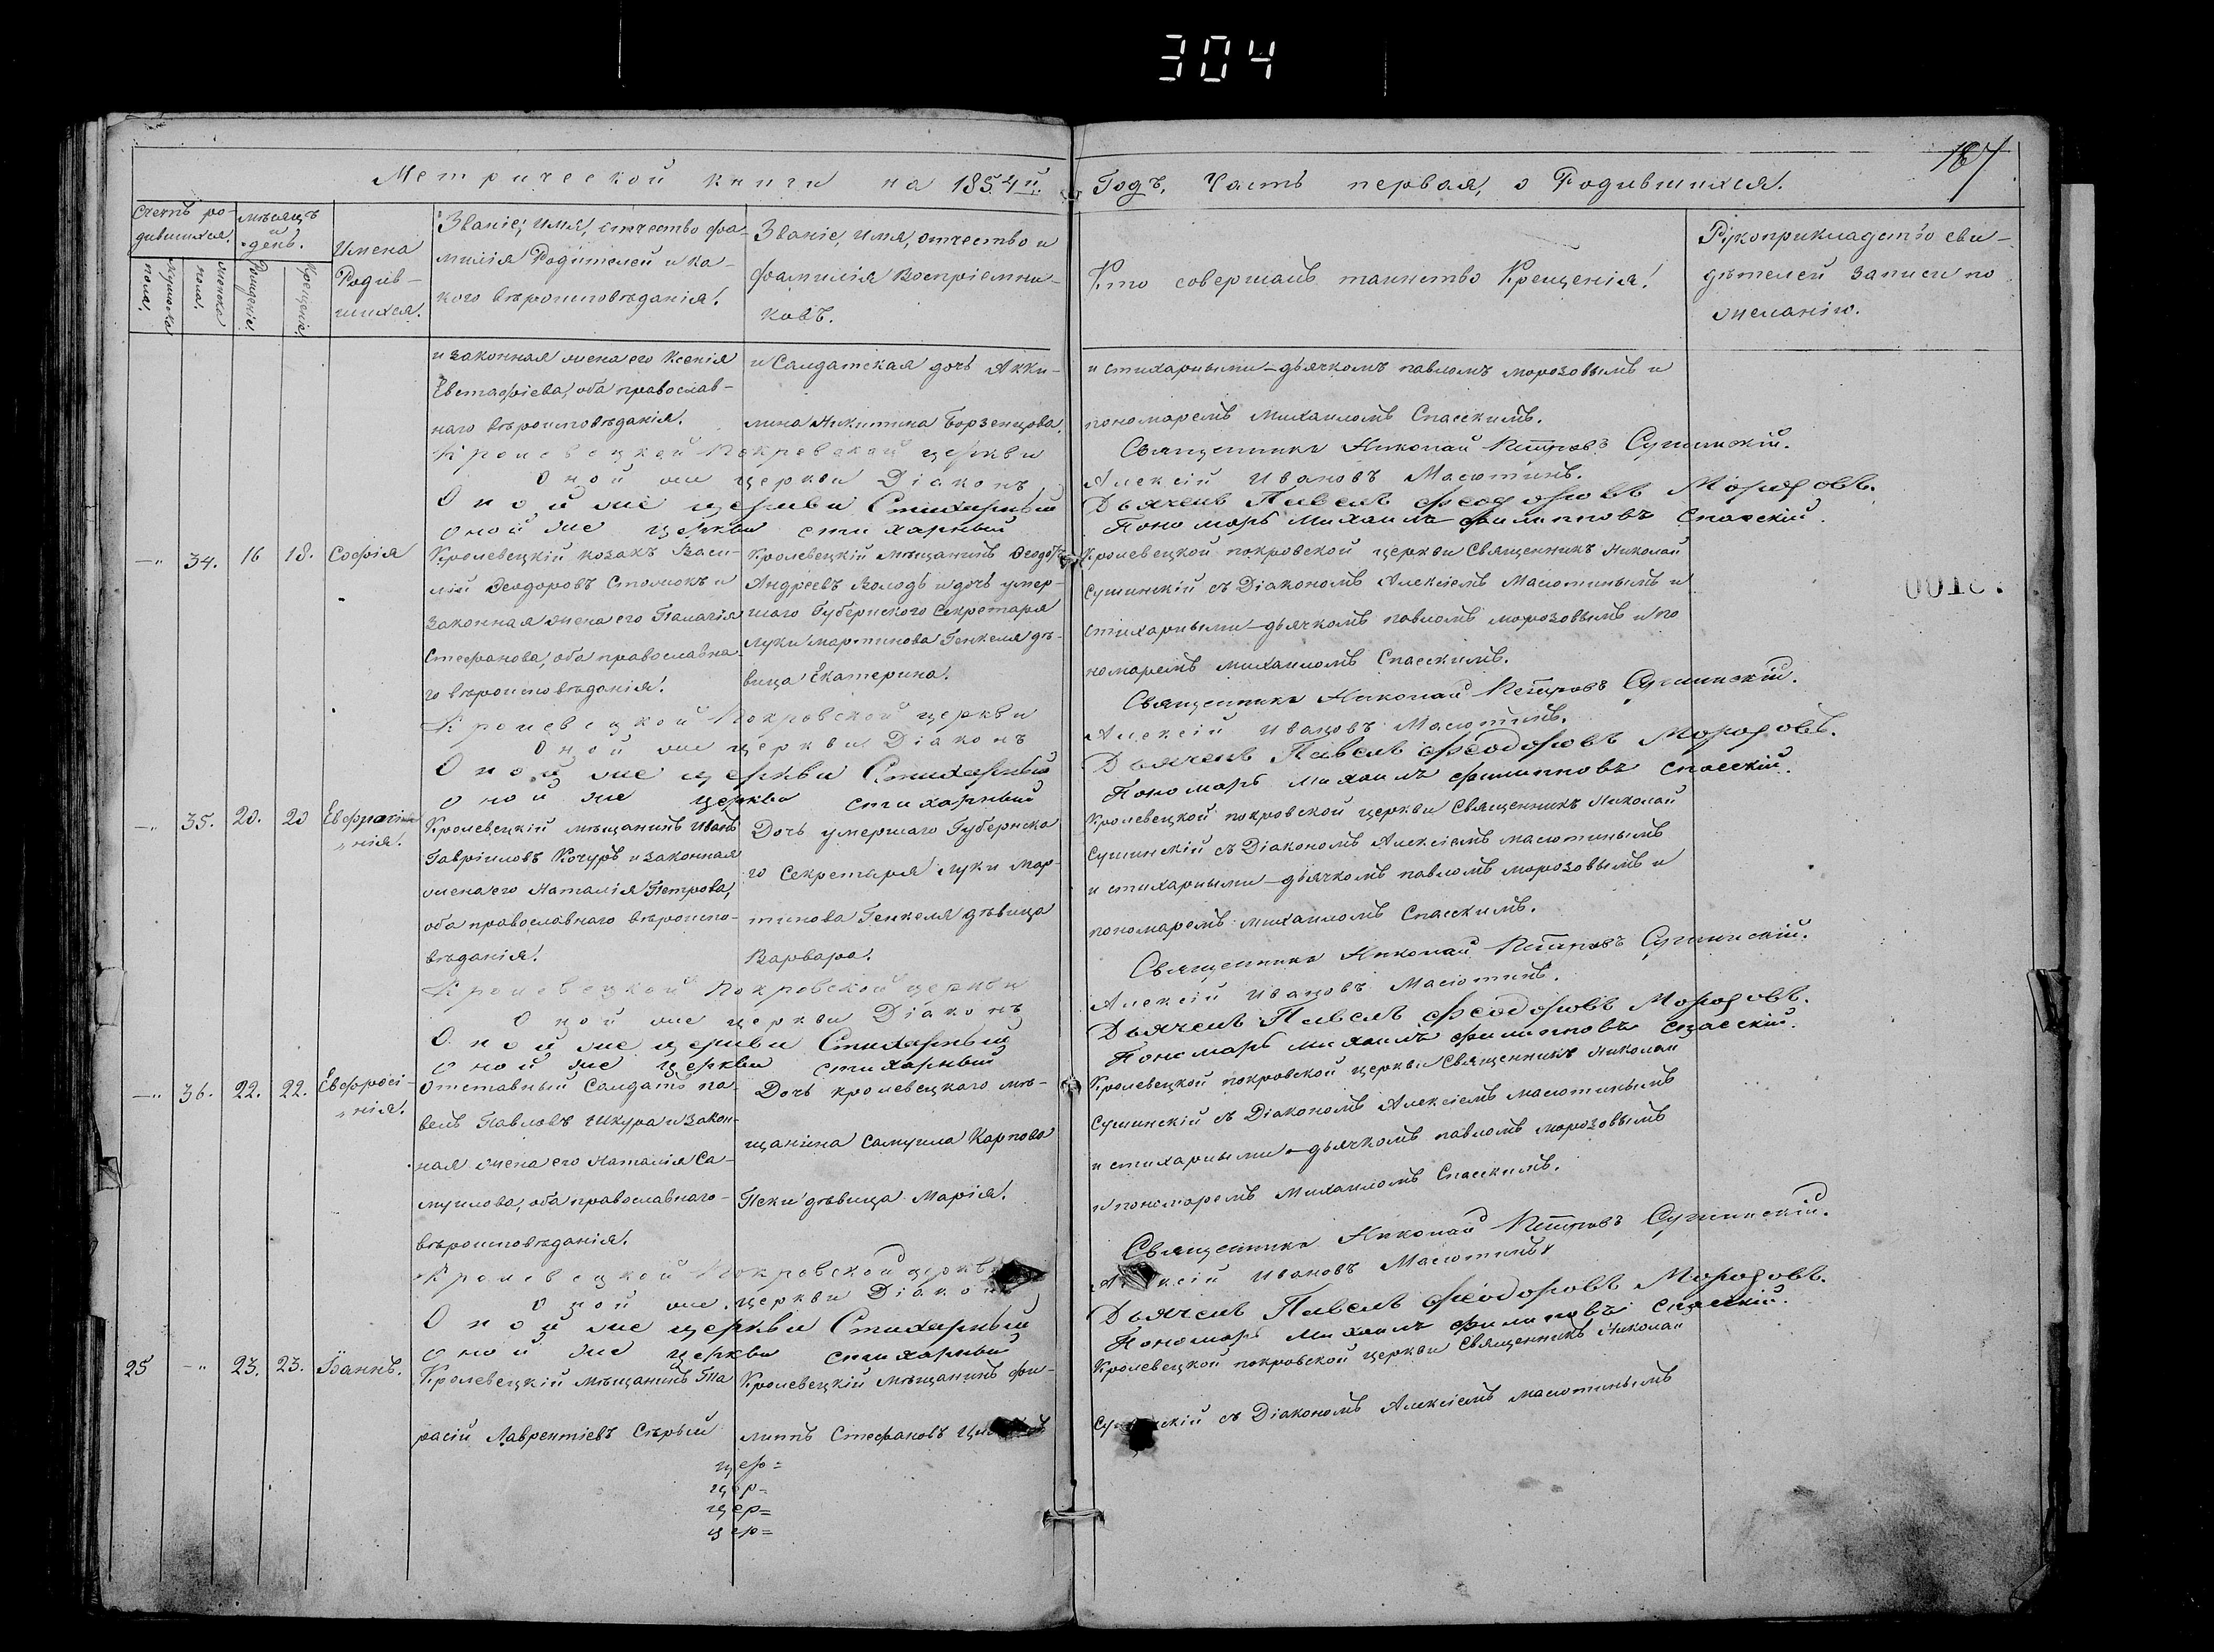 304
187
Метрической книги на 1854й. Годъ, Часть первая, о Родившихся.
Счетъ ро-
дившихся.
мужеска
пола.
женска
пола.
Мѣсяцъ
и
день.
Рожденія
Крещенія
Имена
Родив-
шихся.
Званіе, имя, отчество фа-
милія Родителей и ка-
кого вѣроисповѣданія.
Званіе, имя, отчество и
фамилія Воспріемни-
ковъ.
Кто совершалъ таинство Крещенія.
Рукоприкладство сви-
дѣтелей записи по
желанію.
и законная жена его Ксенія
Евстафіева, оба православ-
наго вѣроисповѣданія.
и Салдатская дочь Акки-
лина Никитина Борзенцова.
и стихарными - дьячкомъ павломъ морозовымъ и
пономаремъ Михаиломъ Спасскимъ.
Кролевецкой Покровской церкви Священникъ Николай Петровъ Сушинскій.
Оной же церкви Діаконъ Алексій Ивановъ Масютинъ.
Оной же церкви Стихарный Дьячекъ Павелъ Феодоровъ Морозовъ.
Оной же церкви стихарный Пономарь Михаилъ Филипповъ Спасскій.
— 34. 16 18. Софія
Кролевецкій козакъ Васи-
лій Феодоровъ Столюкъ и
законная жена его Палагія
Стефанова, оба православна-
го вѣроисповѣданія.
Кролевецкій мѣщанинъ
Андреевъ Колодъ и дочь умер-
шаго Губернского Секретаря
Луки Мартинова Генкеля дѣ-
вица Екатерина.
Кролевецкой покровской церкви Священникъ Николай
Сушинскій съ Діакономъ Алексіемъ Масютинымъ и
стихарными - дьячкомъ павломъ морозовымъ и по
номаремъ михаиломъ Спасскимъ.
Кролевецкой Покровской церкви Священникъ Николай Петровъ Сушинскій.
Оной же церкви Діаконъ Алексій Ивановъ Масютинъ.
Оной же церкви Стихарный Дьячекъ Павелъ Феодоровъ Морозовъ.
Оной же церкви стихарный Пономарь Михаилъ Филипповъ Спасскій.
— 35. 20. 20
нія.
Кролевецкій мѣщанинъ Иванъ
Гавріиловъ Кочуръ и законная
жена его Наталія Петрова,
оба православнаго вѣроиспо-
вѣданія.
Дочь умершаго Губернска
го Секретаря луки Мар-
тинова Генкеля дѣвица
Варвара.
Кролевецкой покровской церкви Священникъ Николай
Сушинскій съ Діакономъ Алексіемъ масютинымъ
и стихарными - дьячкомъ павломъ морозовымъ и
пономаремъ михаиломъ Спасскимъ.
Кролевецкой Покровской церкви Священникъ Николай Петровъ Сушинскій.
Оной же церкви Діаконъ Алексій Ивановъ Масютинъ.
Оной же церкви Стихарный Дьячекъ Павелъ Феодоровъ Морозовъ.
Оной же церкви стихарный Пономарь Михаилъ Филипповъ Спасскій.
— 36. 22. 22. Евфросі-
нія.
Отставный Салдатъ па-
велъ Павловъ Шкура и закон-
ная жена его Наталія Са-
муилова, оба православнаго
вѣроисповѣданія.
Дочь кролевецкаго мѣ-
щанина Самуила Карпова
Пеки дѣвица Марія.
Кролевецкой покровской церкви Священникъ Николай
Сушинскій съ Діакономъ Алексіемъ масютинымъ
и стихарными - дьячкомъ павломъ морозовымъ
и пономаремъ Михаиломъ Спасскимъ.
Кролевецкой Покровской церкви Священникъ Николай Петровъ Сушинскій.
Оной же церкви Діаконъ Алексій Ивановъ Масютинъ
Оной же церкви Стихарный Дьячекъ Павелъ Феодоровъ Морозовъ.
Оной же церкви стихарный Пономарь Михаилъ Филипповъ Спасскій.
25 — 23. 23. Іоаннъ.
Кролевецкій мѣщанинъ Та
расій Лаврентіевъ Сѣрый
Кролевецкій мѣщанинъ Фи-
липпъ Стефановъ
Кролевецкой покровской церкви Священникъ Николай
Сушинскій съ Діакономъ Алексіемъ масютинымъ
цер=
цер=
цер=
цер=